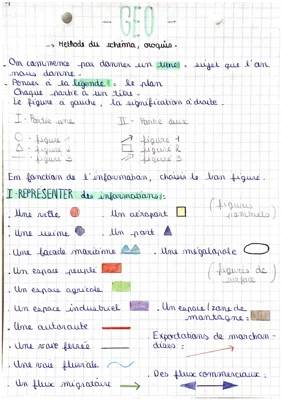 - GEO -
→ Méthode du schéma, croquis.
- On commence par donner un titre = sujet que l'on nous donne.
- Penser à la légende : le plan
Chaque partie a un titre.
Le figuré à gauche, la signification à droite.
I - Partie une II - Partie deux
figuré 1 figuré 1
figuré 2 figuré 2
figuré 3 figuré 3
En fonction de l'information, choisir le bon figuré.
I REPRÉSENTER des informations :
. Une ville . Un aéroport (figurés ponctuels)
. Une usine . Un port
. Une façade maritime . Une mégalopole
. Un espace peuplé (figurés de surface)
. Un espace agricole
. Un espace industriel . Un espace/zone de montagne :
. Une autoroute
. Une voie ferrée Exportations de marchandises :
. Une voie fluviale
. Un flux migratoire . Des flux commerciaux :